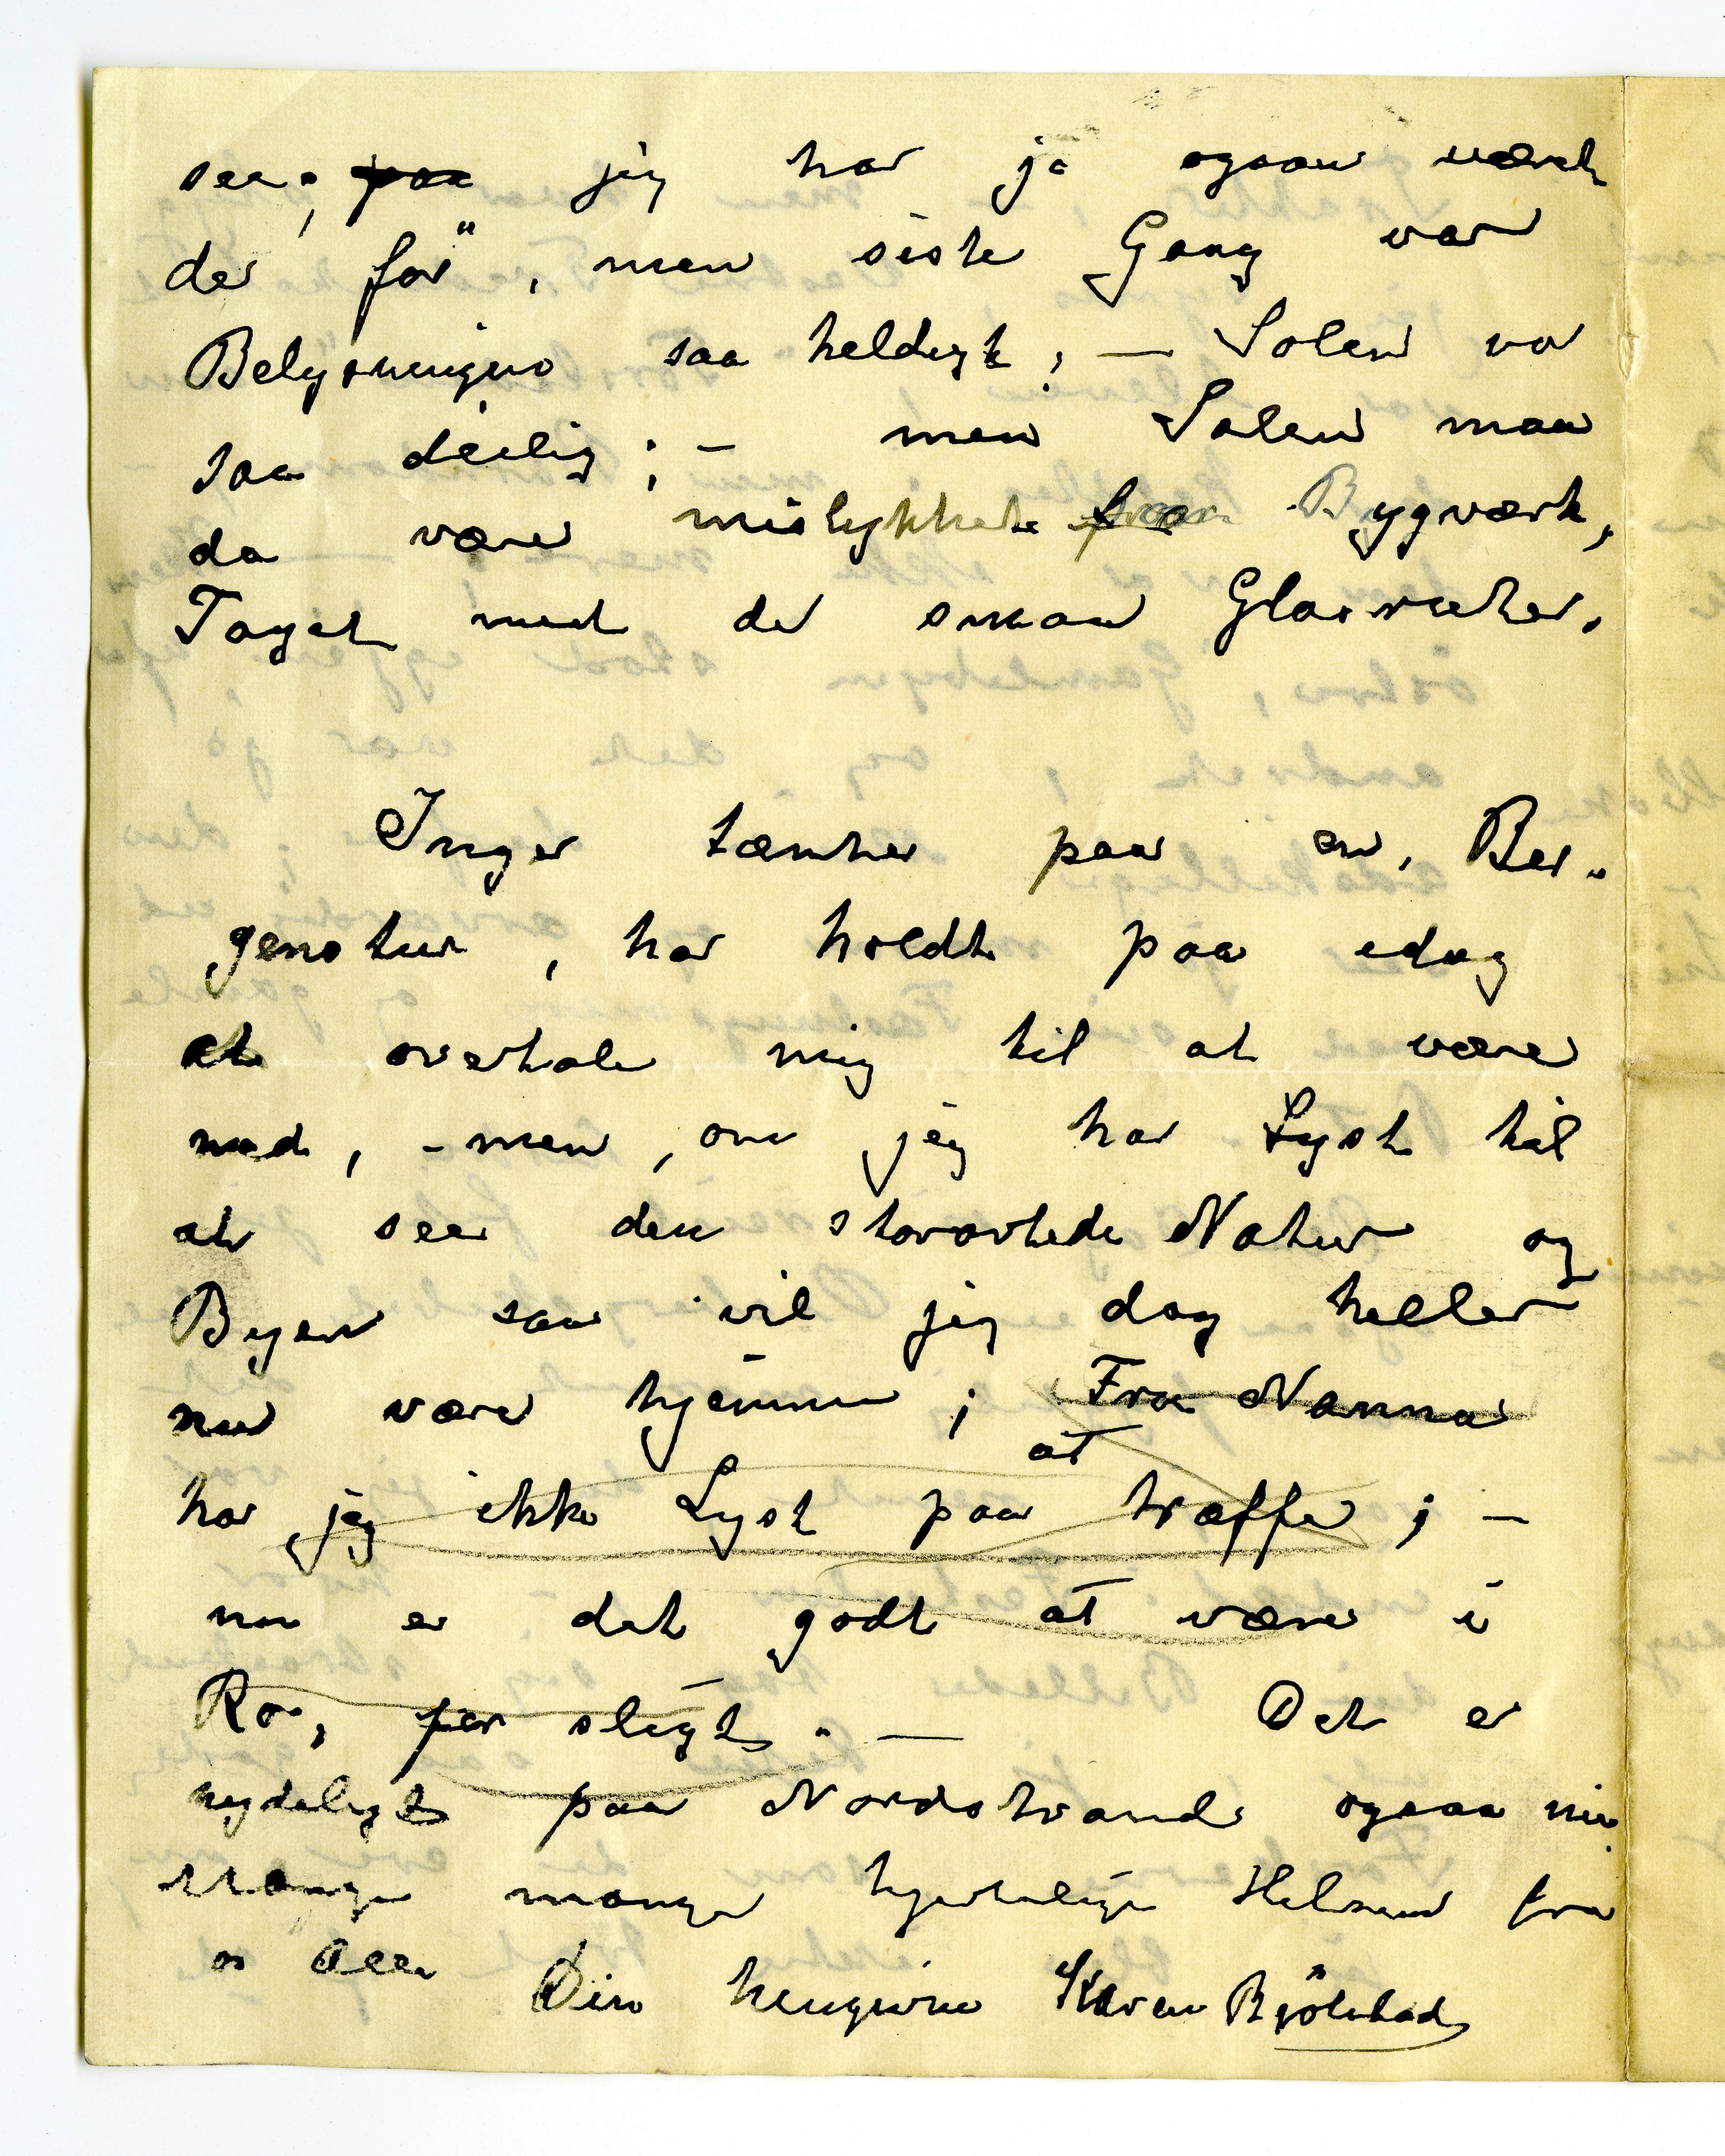 see, paa jeg har jo ogsaa været
der før, men siste Gang var
Belysningen saa heldigt; — Solen var
saa deilig; — men Salen maa
da være mislykket Bygværk,
Taget med de smaa Glasruter.
Inger tænker paa en Ber-
genstur, har holdt paa idag
at overtale mig til at være
med, - men, om jeg har Lyst til
at see den storartede Natur og
Byen saa vil jeg dog heller
nu være hjemme; Fra Nanna
at
har jeg ikke Lyst paa træffe; —
nu er det godt at være i
Ro, før sligt. — Det er
nydeligt paa Nordstrand ogsaa nu
mange mange hjertelige Hilsener fra
os Alle Din hengivne Karen Bjölstad